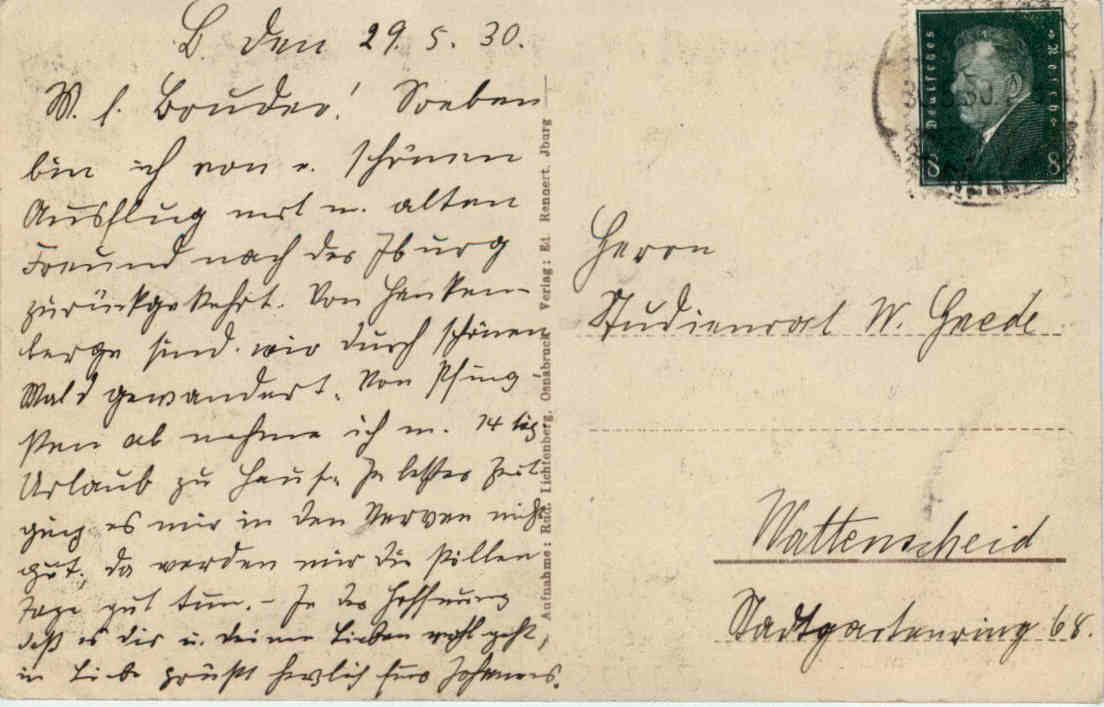 B. den 29. 5. 30.
M. l. Bruder! Soeben
bin ich von e. schönen
Ausflug mit m. alten
Freund nach der Iburg
zurückgekehrt. Von Hanken-
berge sind wir durch schönen
Wald gewandert. Von Pfing-
sten ab nehme ich m. 14 täg
Urlaub zu Hause. In letzter Zeit
ging es mir in den Nerven nicht
gut, da werden mir die stillen
Tage gut tun. – In der Hoffnung
daß es dir u. deinen Lieben wohl geht,
in Liebe grüßt herzlich Johannes.
Aufnahme: Rud. Lichtenberg, Osnabrück Verlag: Ed. Rennert, Iburg
Deutsches Reich
8 8
Herrn
Studienrat W. Gaede
Wattenscheid
Stadtgartenring 68.